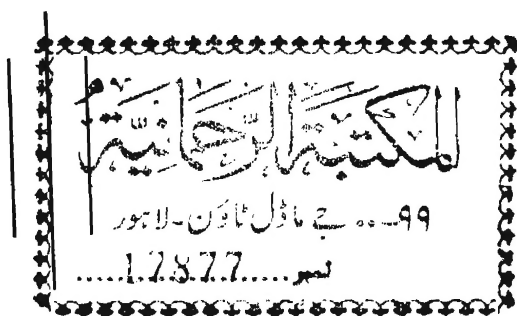 المكتبة الرحمانية
۹۹... جے ماڈل ٹاؤن - لاہور
نمبر.....17877.....